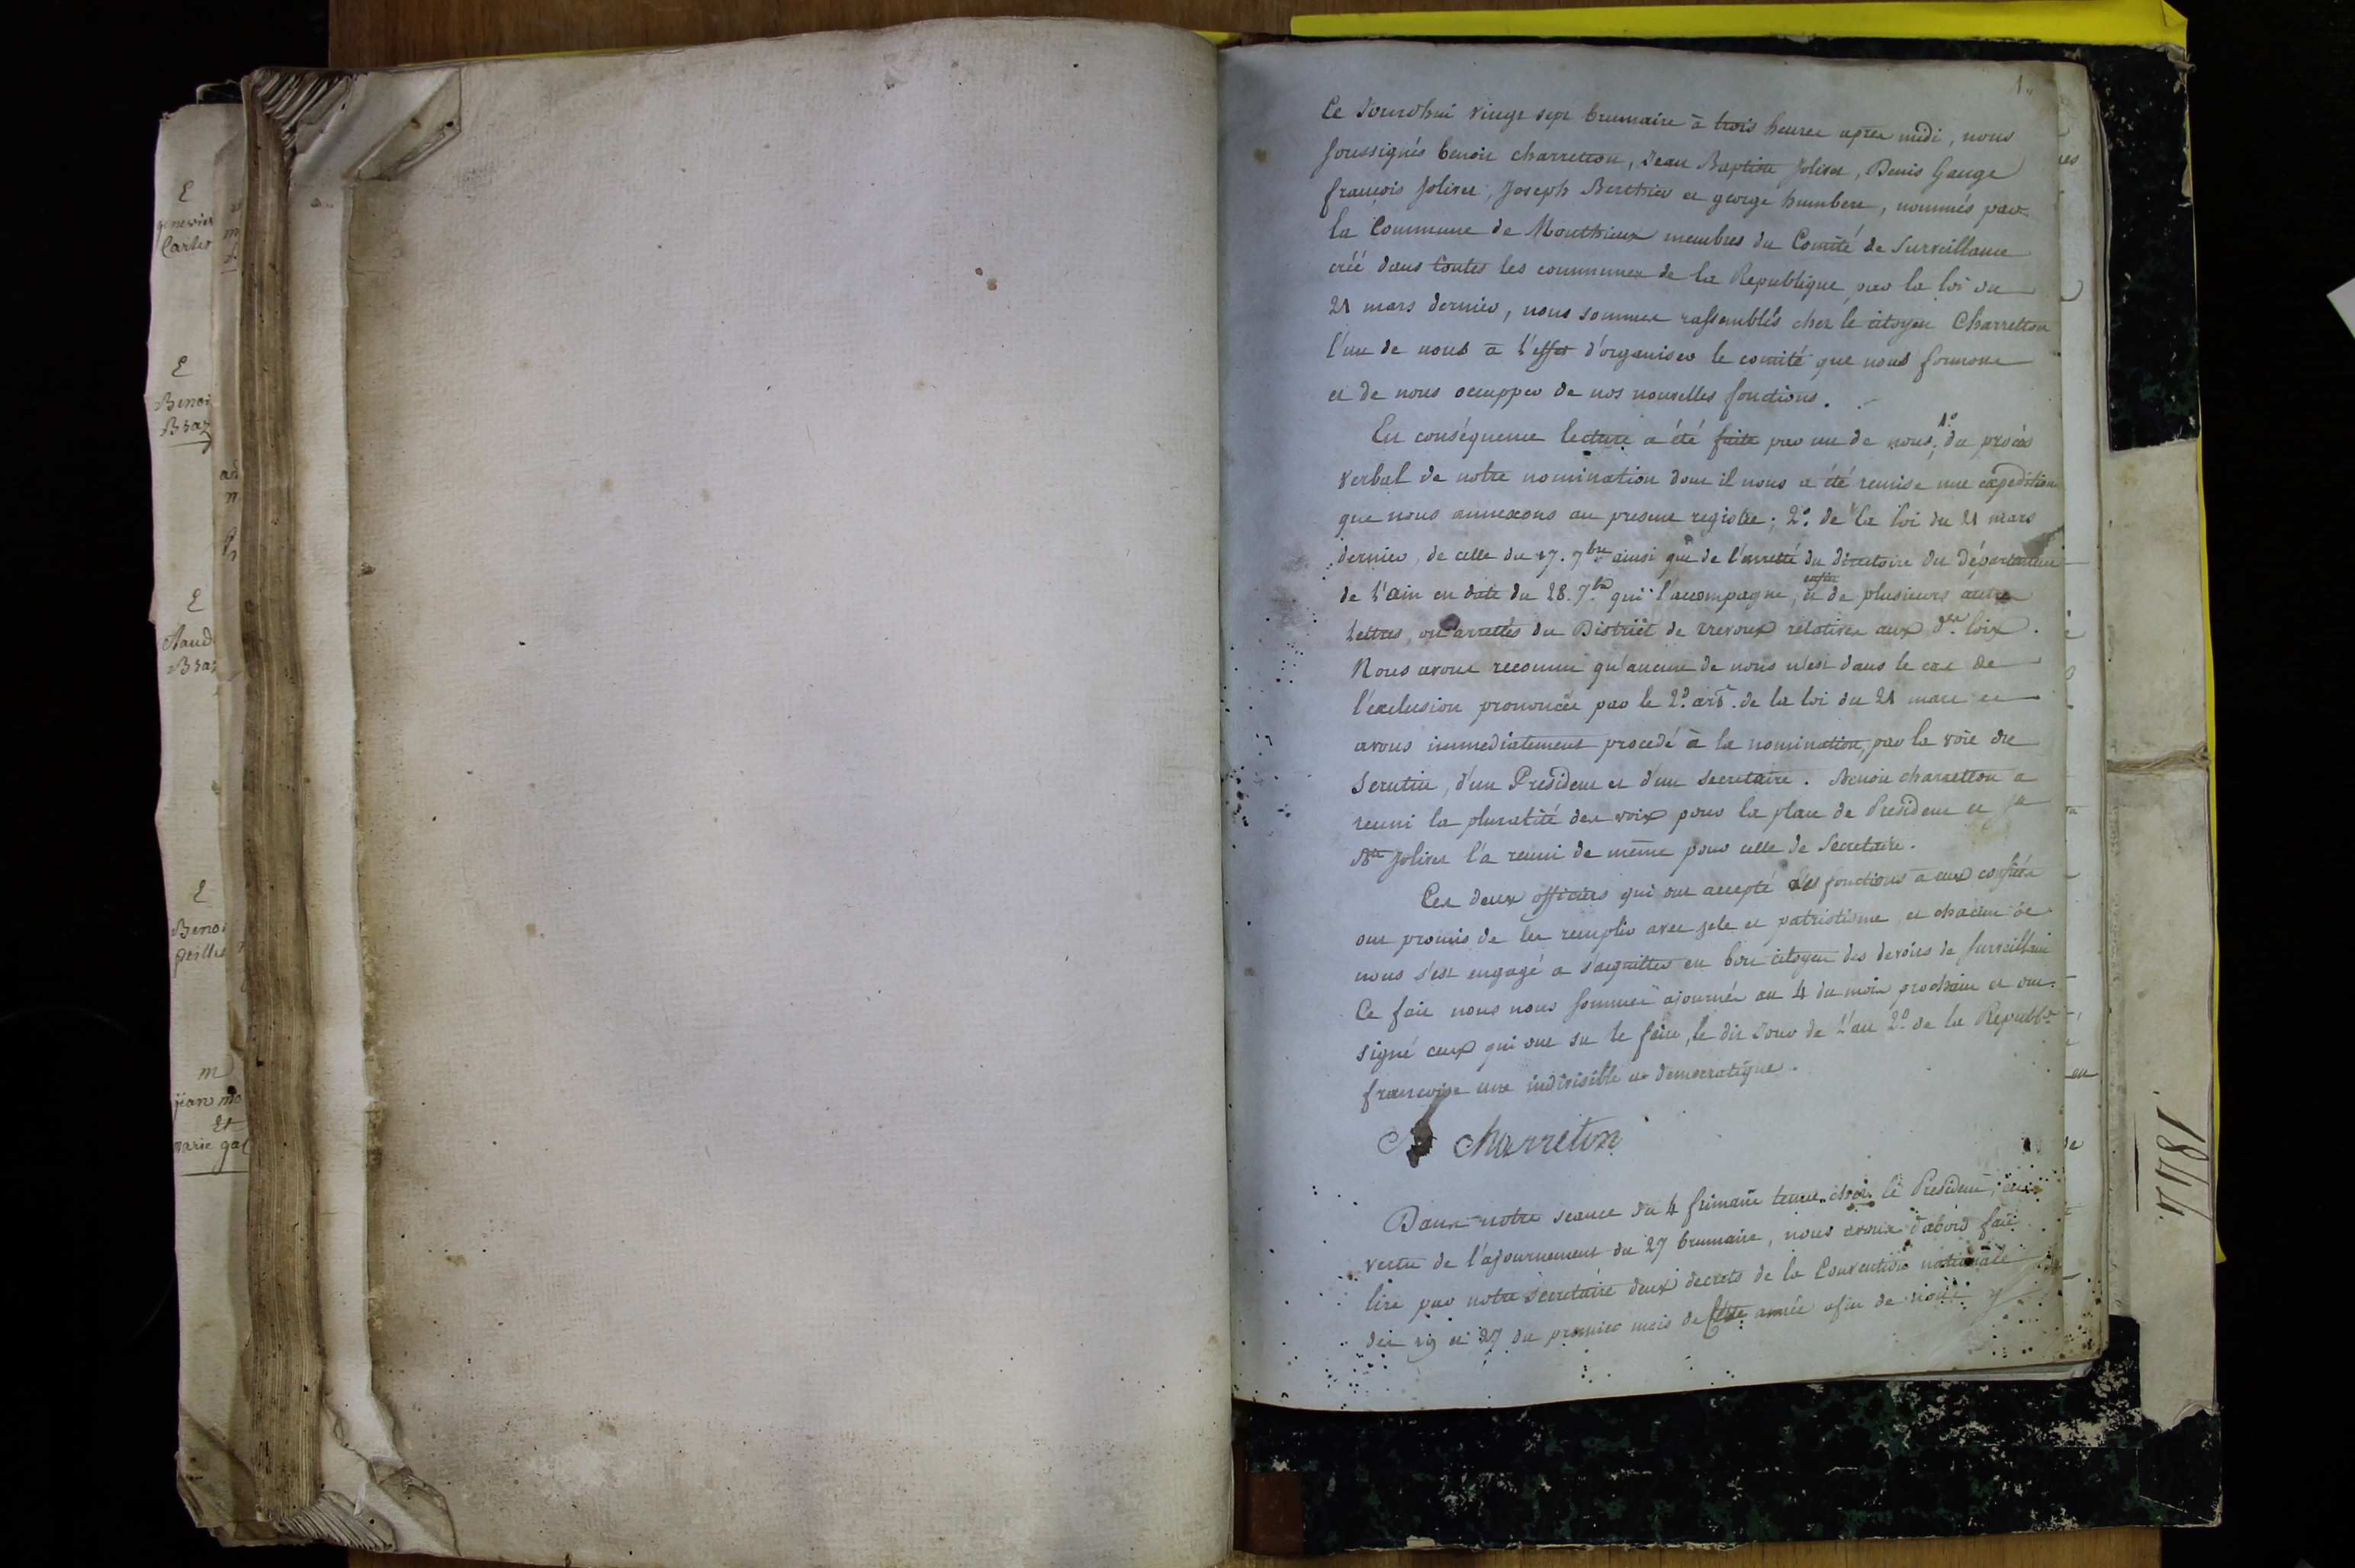 1.
Ce Jourdhui vingt sept brumaire à trois heures après midi, nous
soussignés benoit charretton, Jean Baptiste Jolivet, Denis Gauge
françois Jolivet, Joseph Berthier et george humbert, nommés par
la Commune de Monthieux membres du Comité de Surveillance
créé dans toutes les communes de la Republique par la loi du
21 mars dernier, nous sommes rassemblés chez le citoyen Charretton
l'un de nous à l'effet d'organiser le comité que nous formons
et de nous occupper de nos nouvelles fonctions.
En conséquence lecture a été faite par un de nous, 1º du procès
verbal de notre nomination dont il nous a été remise une expedition
que nous annexons au present registre; 2º de la loi du 21 mars
dernier, de celle du 17. 7bre ainsi que de l'arretté du directoire du département
de l'ain en date du 28. 7bre qui l'accompagne, et enfin de plusieurs autres
lettres, ou arrettés du District de trevoux relatives aux dtes loix.
Nous avons reconnu qu'aucun de nous n'est dans le cas de
l'exclusion prononcée par le 2º art. de la loi du 21 mars et
avons immediatement procedé à la nomination, par la voie du
Scrutin, d'un President et d'un secretaire. Benoit charretton a
reuni la pluralité des voix pour la place de President et Jn
Bte Jolivet l'a reuni de même pour celle de Secretaire.
Ces deux officiers qui ont accepté les fonctions a eux confiées
ont promis de les remplir avec zele et patriotisme et chacun de
nous s'est engagé a s'acquitter en bon citoyen des devoirs de surveillant
Ce fait nous nous sommes ajournés au 4 du mois prochain et ont
signé ceux qui ont su le faire, le dit Jour de l'an 2º de la Republe
francoise une indivisible et democratique.
charreton
Dans notre seance du 4 frimaire tenue chez le President, en
vertu de l'ajournement du 27 brumaire, nous avons d'abord fait
lire par notre secretaire deux decrets de la Convention nationale
des 19 et 27 du premier mois de cette année afin de nous y
E
Carlet
E
Benoi
Braz
E
Braz
E
Benoi
m
jean mo
Et
marie gal
1844